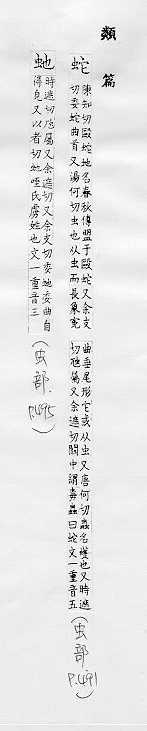 類篇
蛇
陳知切毆蛇地名春秋傳盟于毆蛇又余支
切委蛇曲首又湯何切虫也从虫而長象冤
曲垂尾形它或从虫又唐何切蟲名蠖也又時遮
切虺屬又余遮切閩中謂毒蟲曰蛇文一重音五
(虫部 P.491)
虵
時遮切虺屬又余遮切又余支切委虵委曲自
得皃又以者切虵咥氏虜姓也文一重音三
(虫部. P.495)